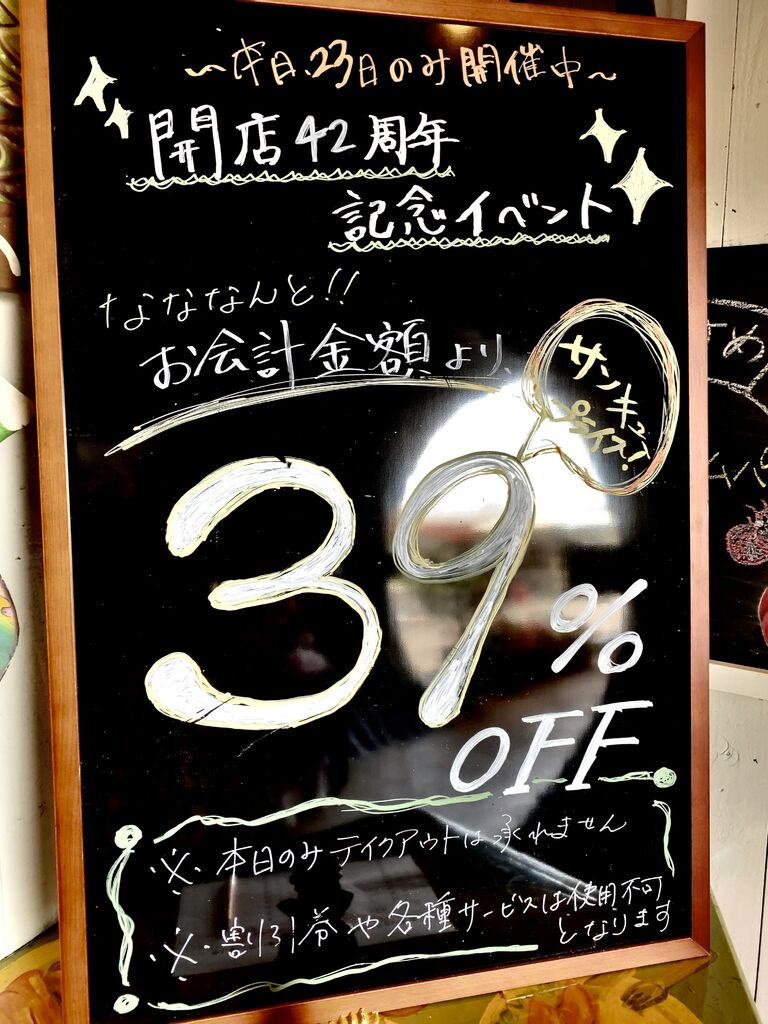 ～本日、23日のみ開催中～
開店42周年
記念イベント
なななんと!!
お会計金額より、
サンキュー
プライス!
39%
OFF
※本日のみテイクアウトは承れません
※割引券や各種サービスは使用不可
となります